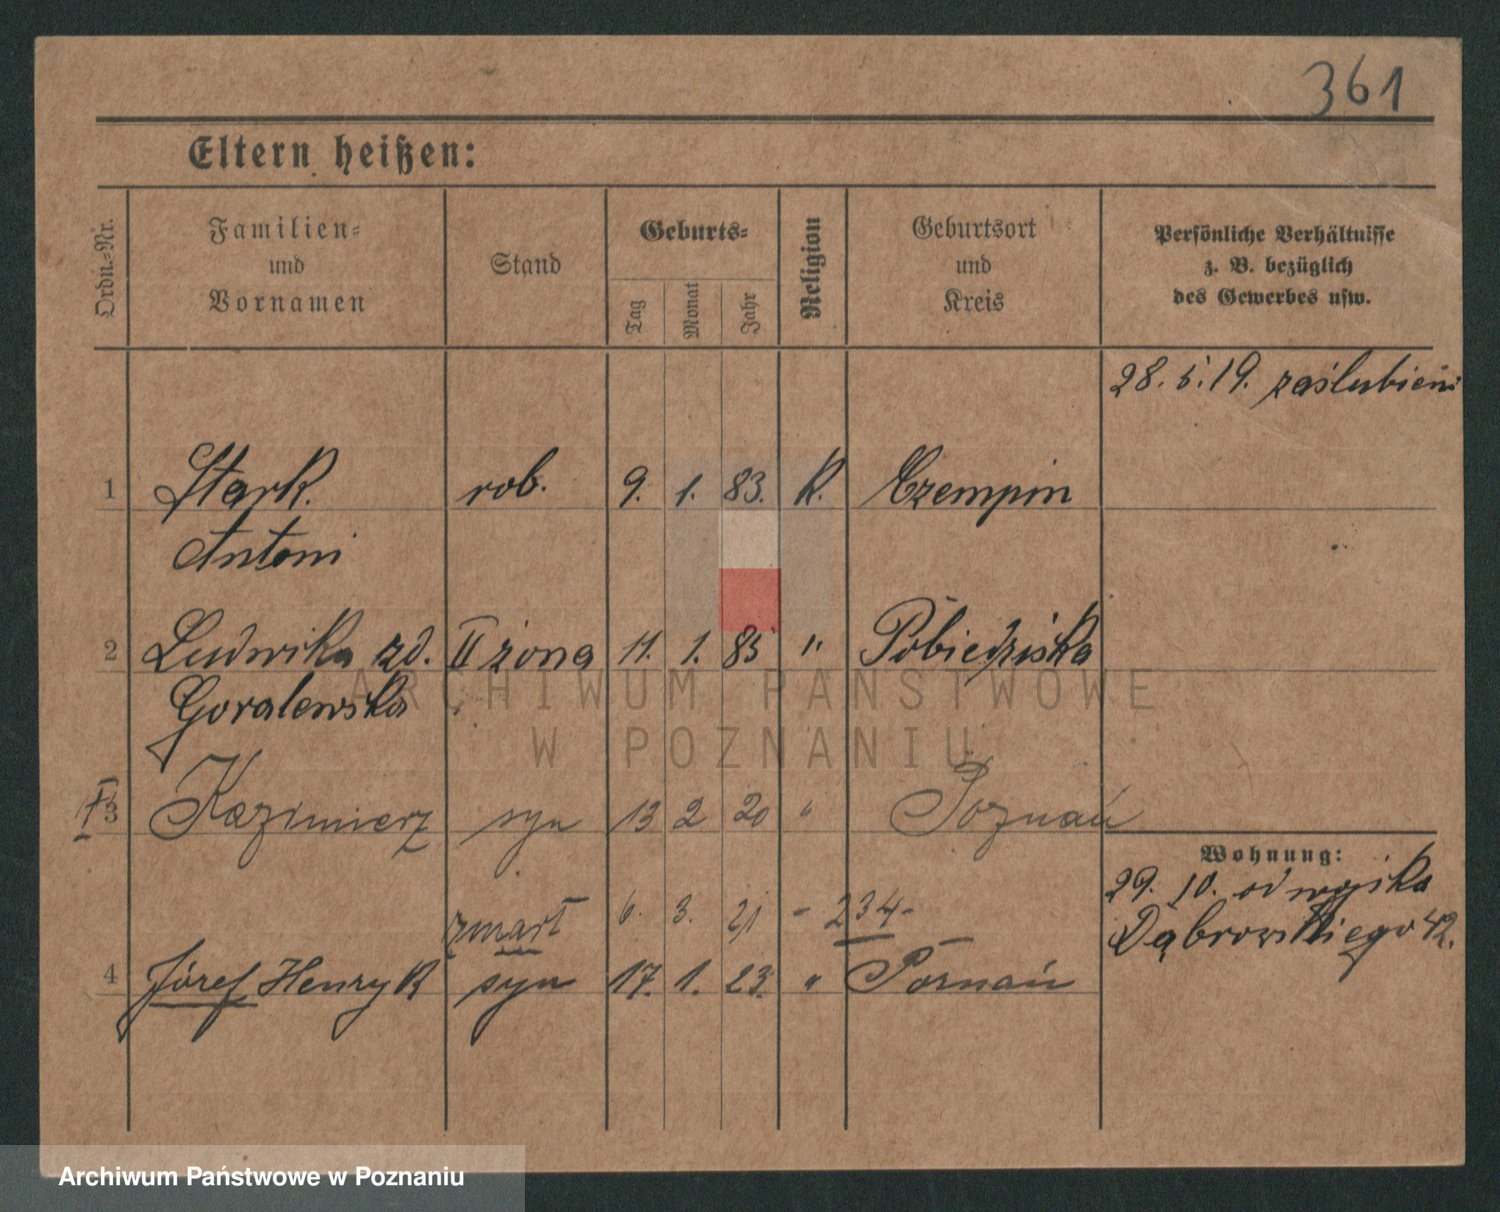 361
Eltern heißen:
Ordn.-Nr.
Familien- und Vornamen
Stand
Geburts-
Tag
Monat
Jahr
Religion
Geburtsort und Kreis
Persönliche Verhältnisse
z. B. bezüglich
des Gewerbes usw.
28. 5. 19. zaślubieni
1 Stark. rob. 9. 1. 83. K. Czempin
Antoni
2 Ludwika zd. II żona 11. 1. 85 " Pobiedziska
Goralewska
†3 Kazimierz syn 13 2 20 " Poznań
Wohnung:
29. 10. od wojska
Dąbrowskiego 42.
zmarł 6. 3. 21 - 234 -
4 Józef Henryk syn 17. 1. 23. " Poznań
ARCHIWUM PAŃSTWOWE
W POZNANIU
Archiwum Państwowe w Poznaniu